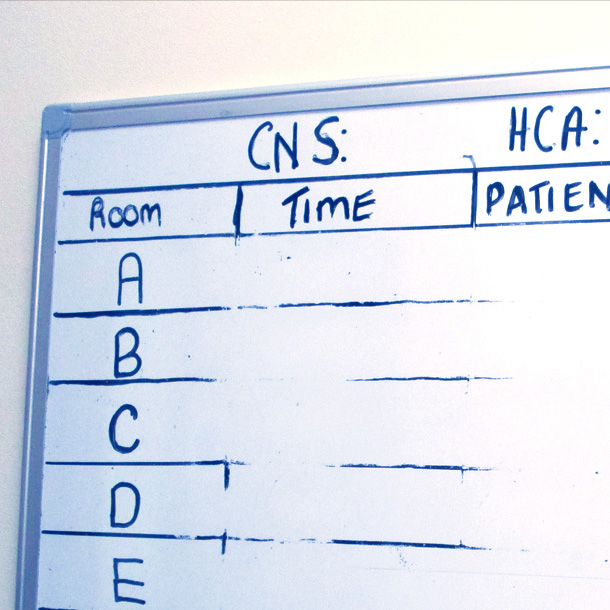 CNS: HCA:
ROOM TIME PATIEN
A
B
C
D
E